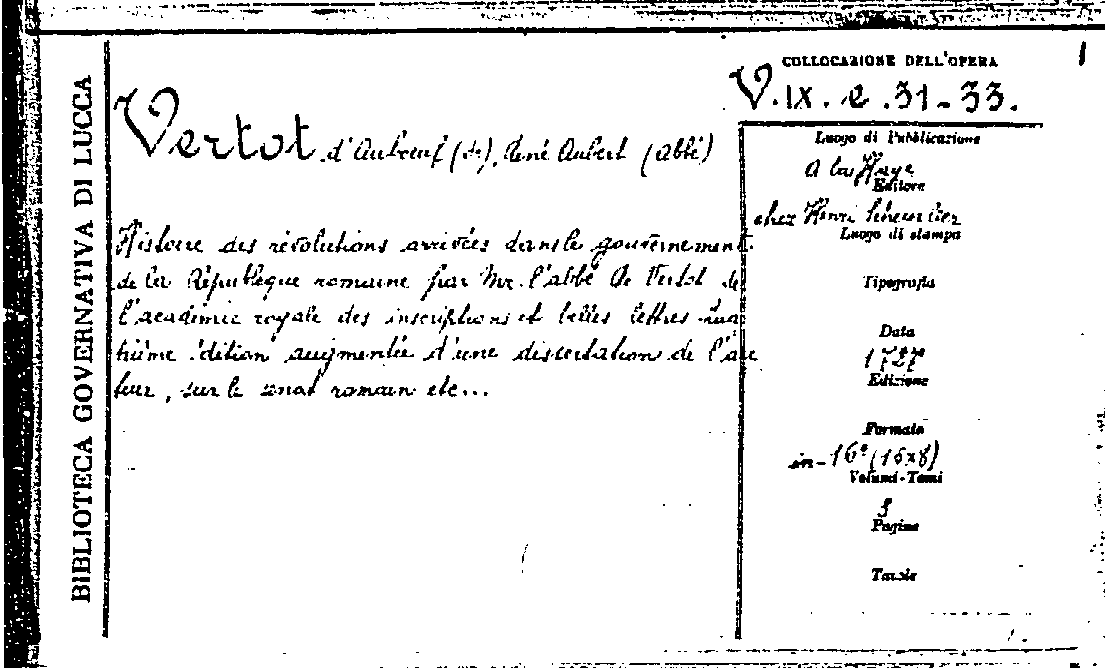 BIBLIOTECA GOVERNATIVA DI LUCCA
1
COLLOCAZIONE DELL'OPERA
V. IX. e. 31-33.
Vertot d'Auboeuf (de), René Aubert (abbé)
Histoire des révolutions arrivées dans le gouvernement
de la République romaine par Mr. l'abbé de Vertot de
l'academie royale des inscriptions et belles lettres
trième édition augmentée d'une dissertation de l'au
teur, sur le senat romain etc...
Luogo di Pubblicazione
A la Haye
Editore
chez Henri
Luogo di stampa
Tipografia
Data
1727
Edizione
Formato
in-16° (16x8)
Volumi-Tomi
3
Pagine
Tavole